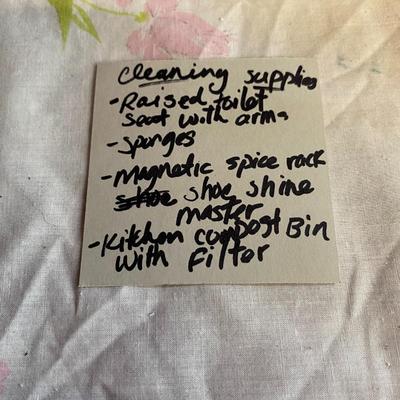 Cleaning supplies
-Raised toilet
seat with arms
-Sponges
-Magnetic spice rack
shoe shoe shine
master
-Kitchen compost Bin
with Filter